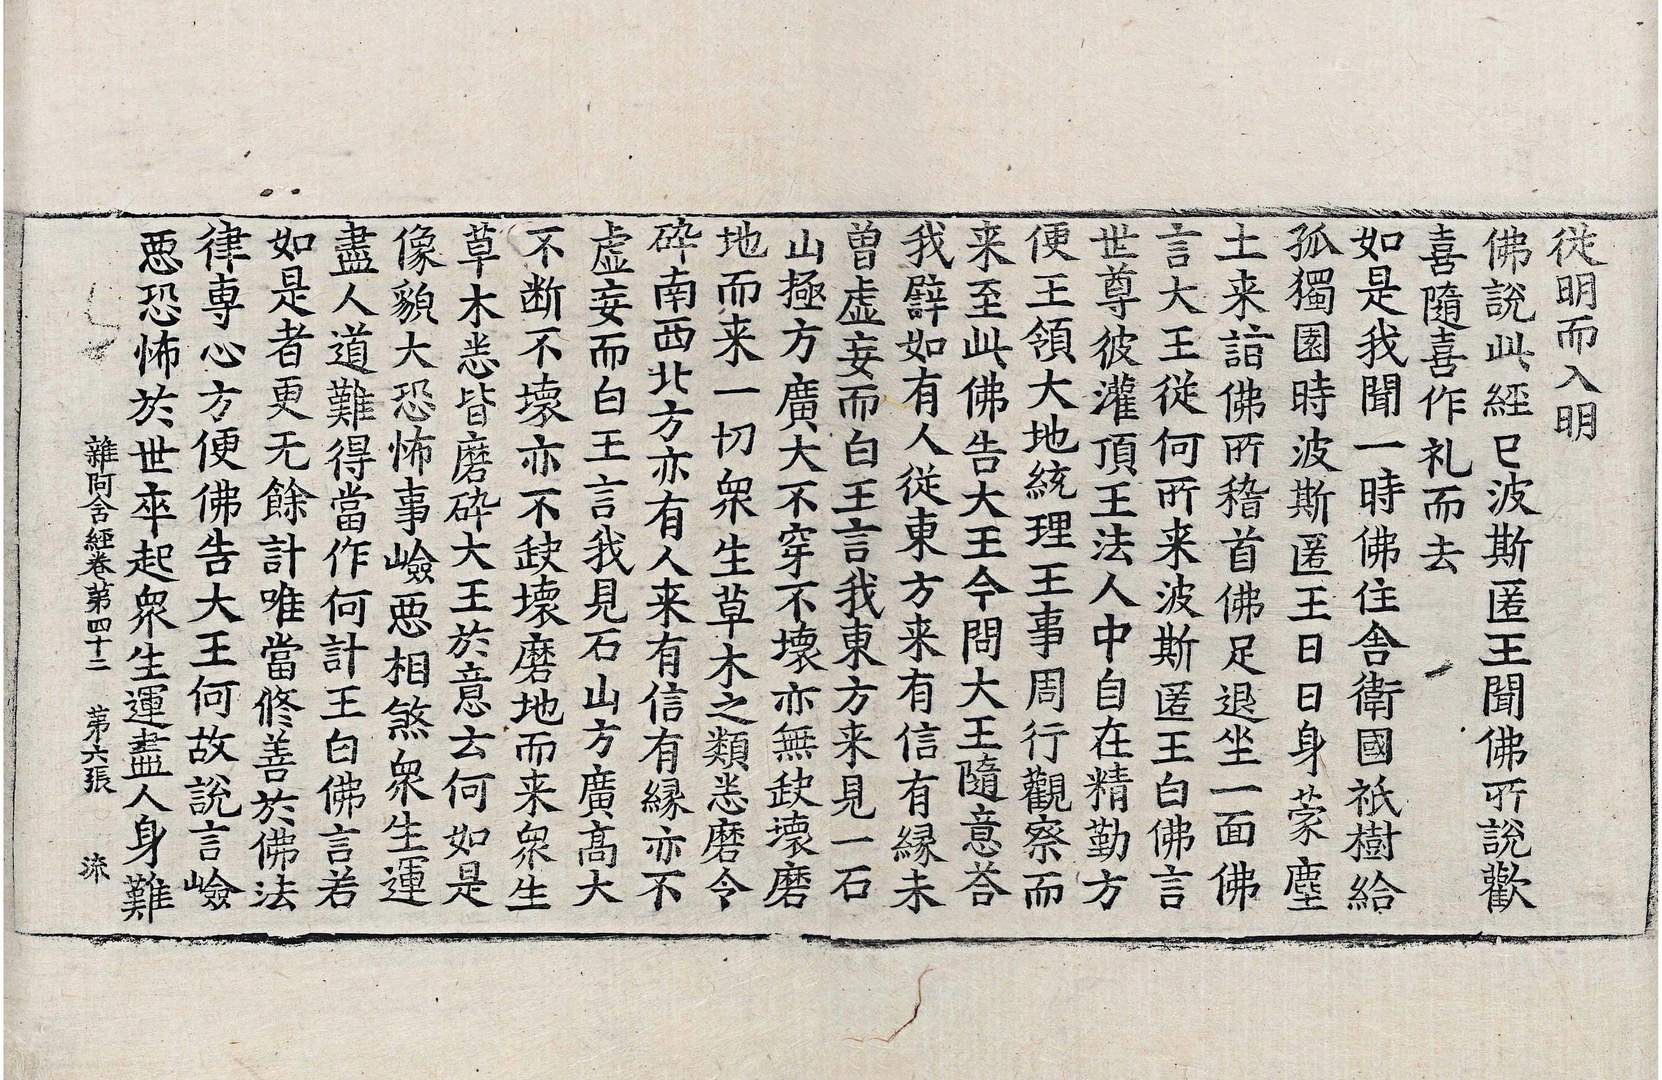 従明而入明
佛說此經已波斯匿王聞佛所說歡
喜隨喜作礼而去
如是我聞一時佛住舍衛國祇樹給
孤獨園時波斯匿王日日身蒙塵
土来詣佛所稽首佛足退坐一面佛
言大王従何所来波斯匿王白佛言
世尊彼灌頂王法人中自在精勤方
便王領大地統理王事周行觀察而
来至此佛告大王今問大王隨意荅
我譬如有人従東方来有信有縁未
曾虛妄而白王言我東方来見一石
山極方廣大不穿不壞亦無缺壞磨
地而来一切衆生草木之類悉磨令
碎南西北方亦有人来有信有縁亦不
虛妄而白王言我見石山方廣髙大
不断不壞亦不缺壞磨地而来衆生
草木悉皆磨碎大王於意云何如是
像貌大恐怖事嶮惡相煞衆生運
盡人道難得當作何計王白佛言若
如是者更无餘計唯當修善於佛法
律専心方便佛告大王何故說言嶮
惡恐怖於世卒起衆生運盡人身難
雜阿含經卷第四十二 第六張 流